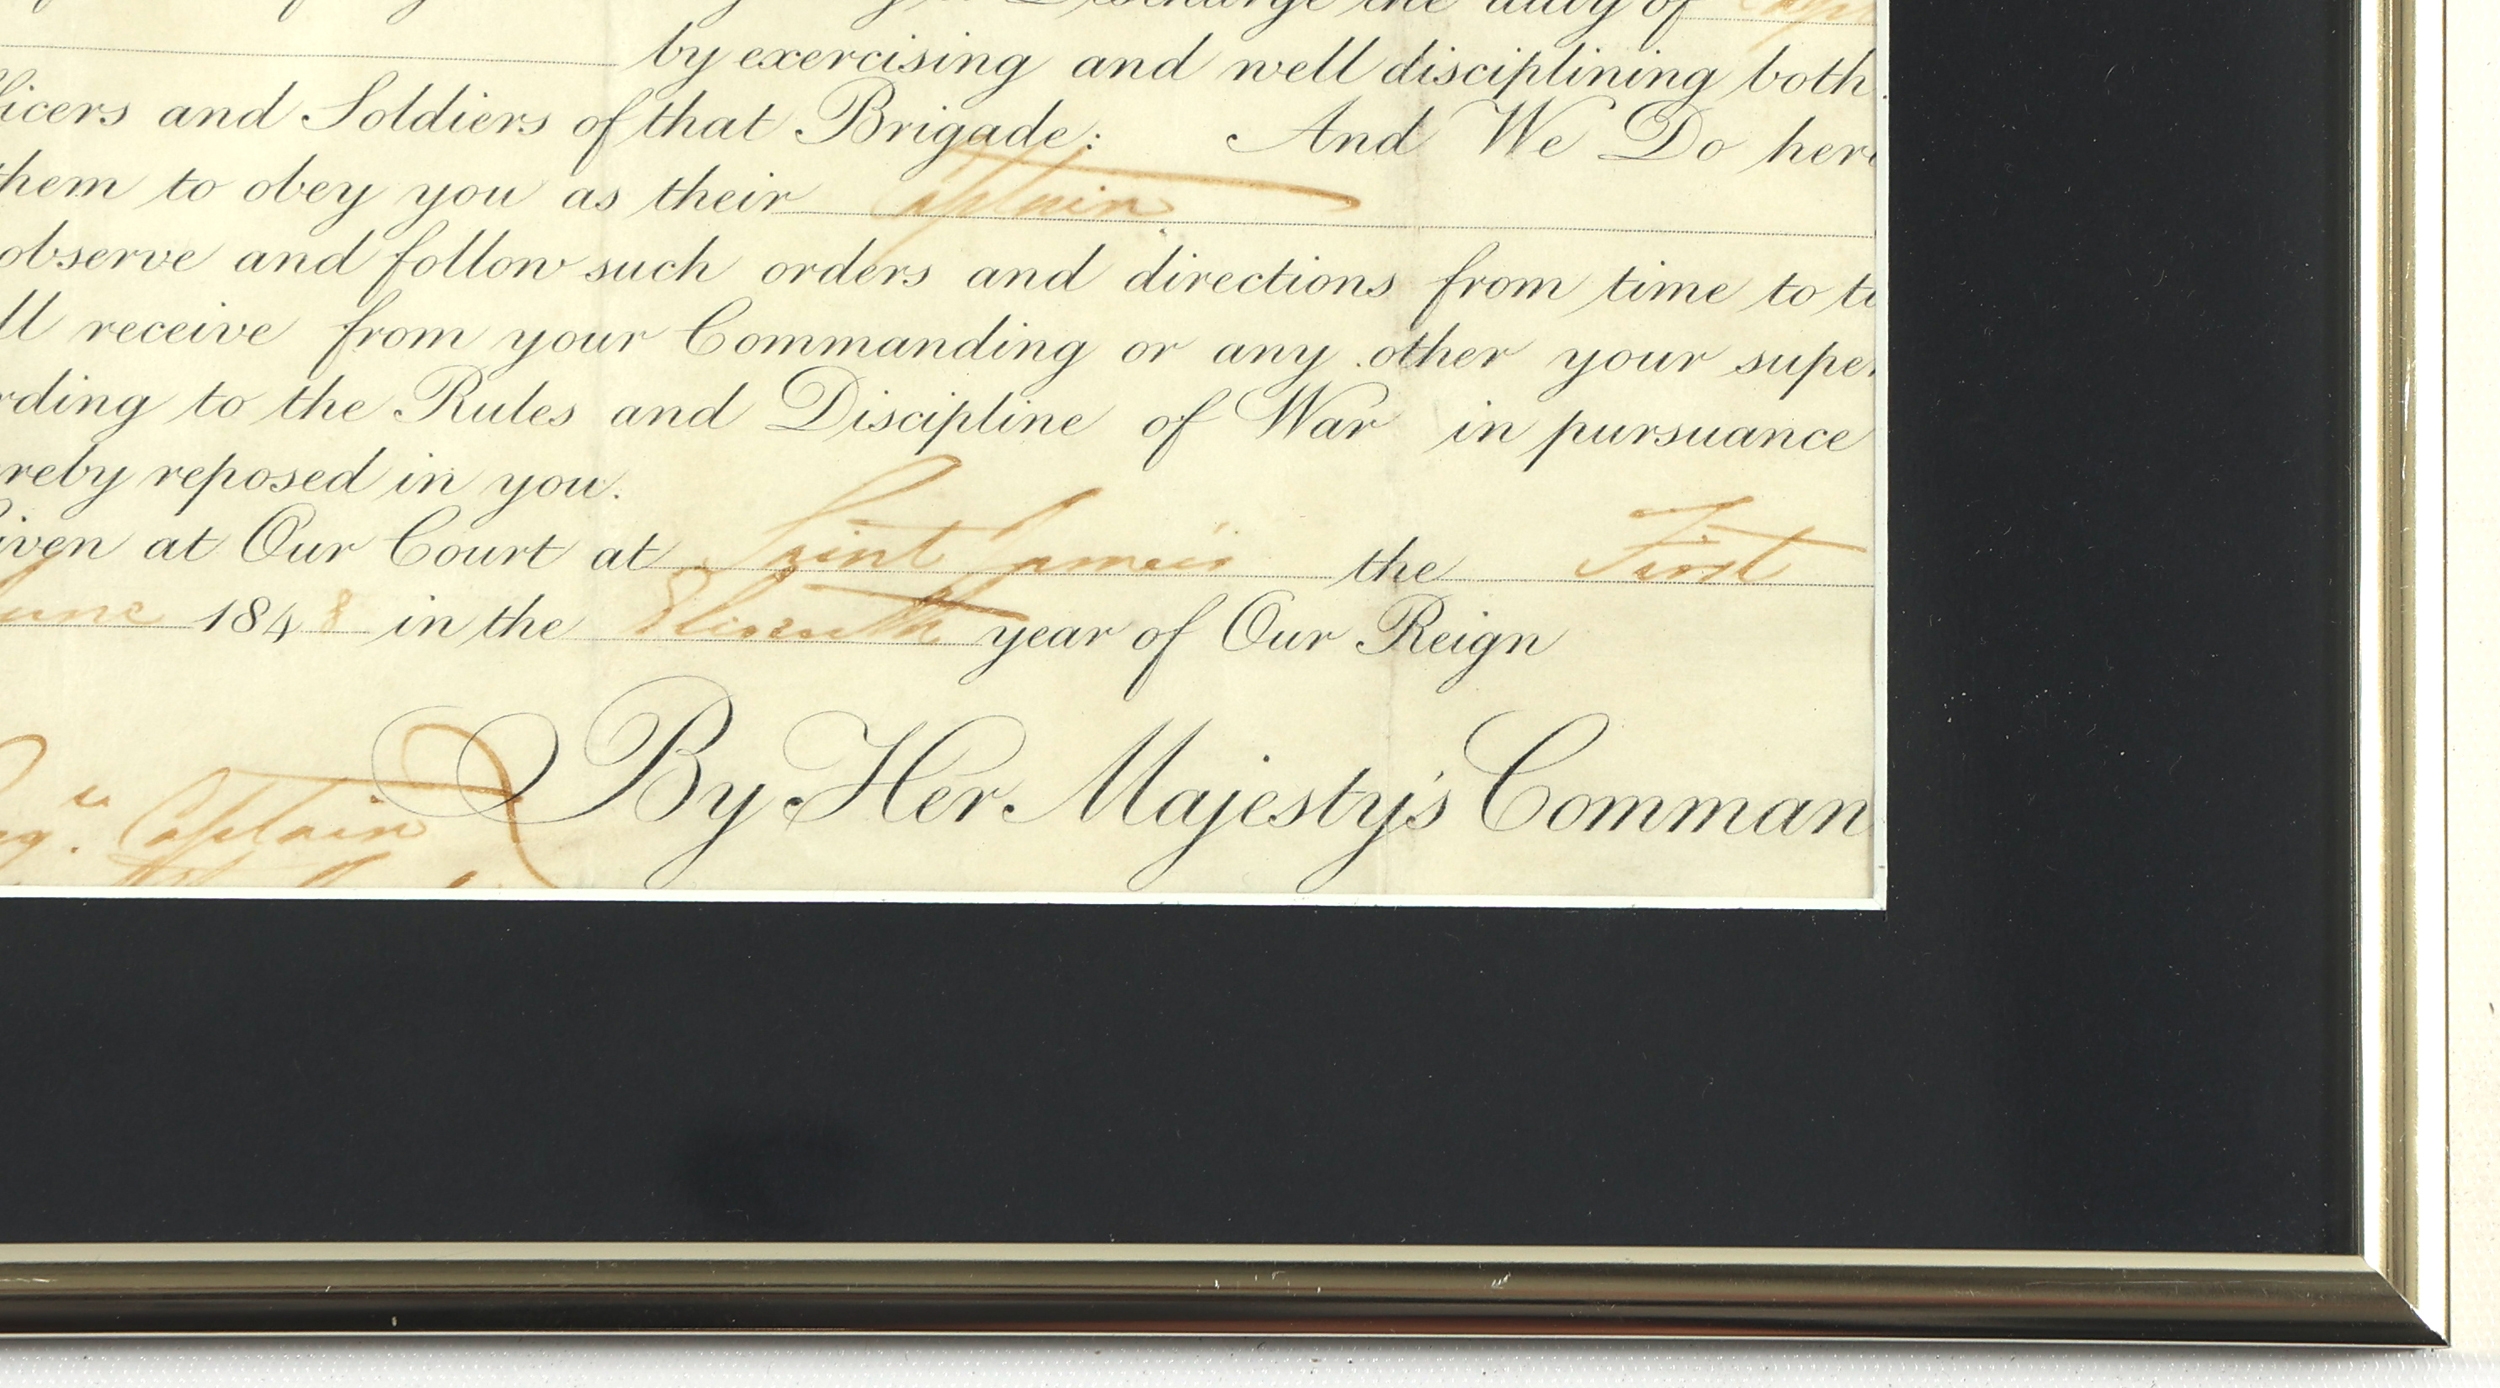 Discharge the duty of Capt
by exercising and well disciplining both
ficers and Soldiers of that Brigade: And We Do here
them to obey you as their Captain
observe and follow such orders and directions from time to ti
ll receive from your Commanding or any other your super
rding to the Rules and Discipline of War in pursuance
reby reposed in you.
iven at Our Court at Saint James's the First
June 1848 in the Eleventh year of Our Reign
By Her Majesty's Comman
Captain